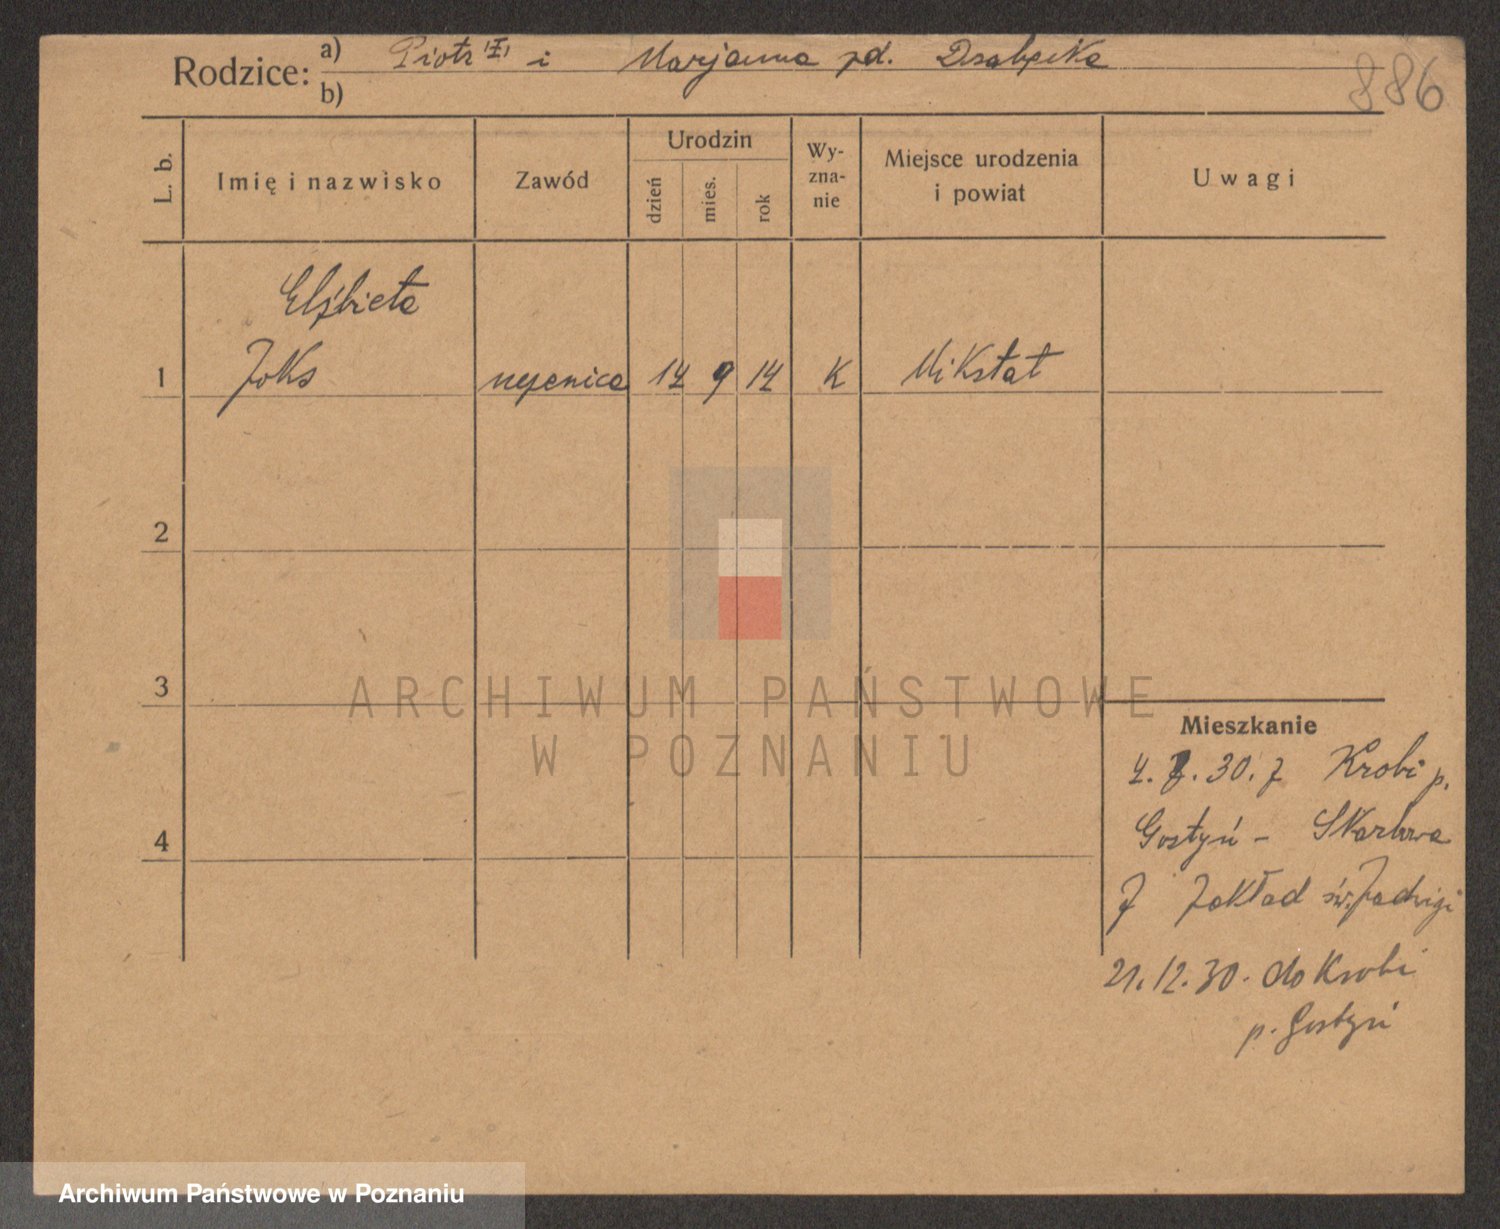 Rodzice: a) Piotr i Marjanna zd.
b)
886
L. b.
Imię i nazwisko
Zawód
Urodzin
dzień
mies.
rok
Wy-
zna-
nie
Miejsce urodzenia
i powiat
Uwagi
Elżbieta
1 Joks uczenica 14 9 14 K Mikstat
2
3
4
ARCHIWUM PAŃSTWOWE
W POZNANIU
Mieszkanie
30. z Krobi p.
Gostyń -
Zakład św. Jadwigi
21.12.30. do Krobi
p. Gostyń
Archiwum Państwowe w Poznaniu